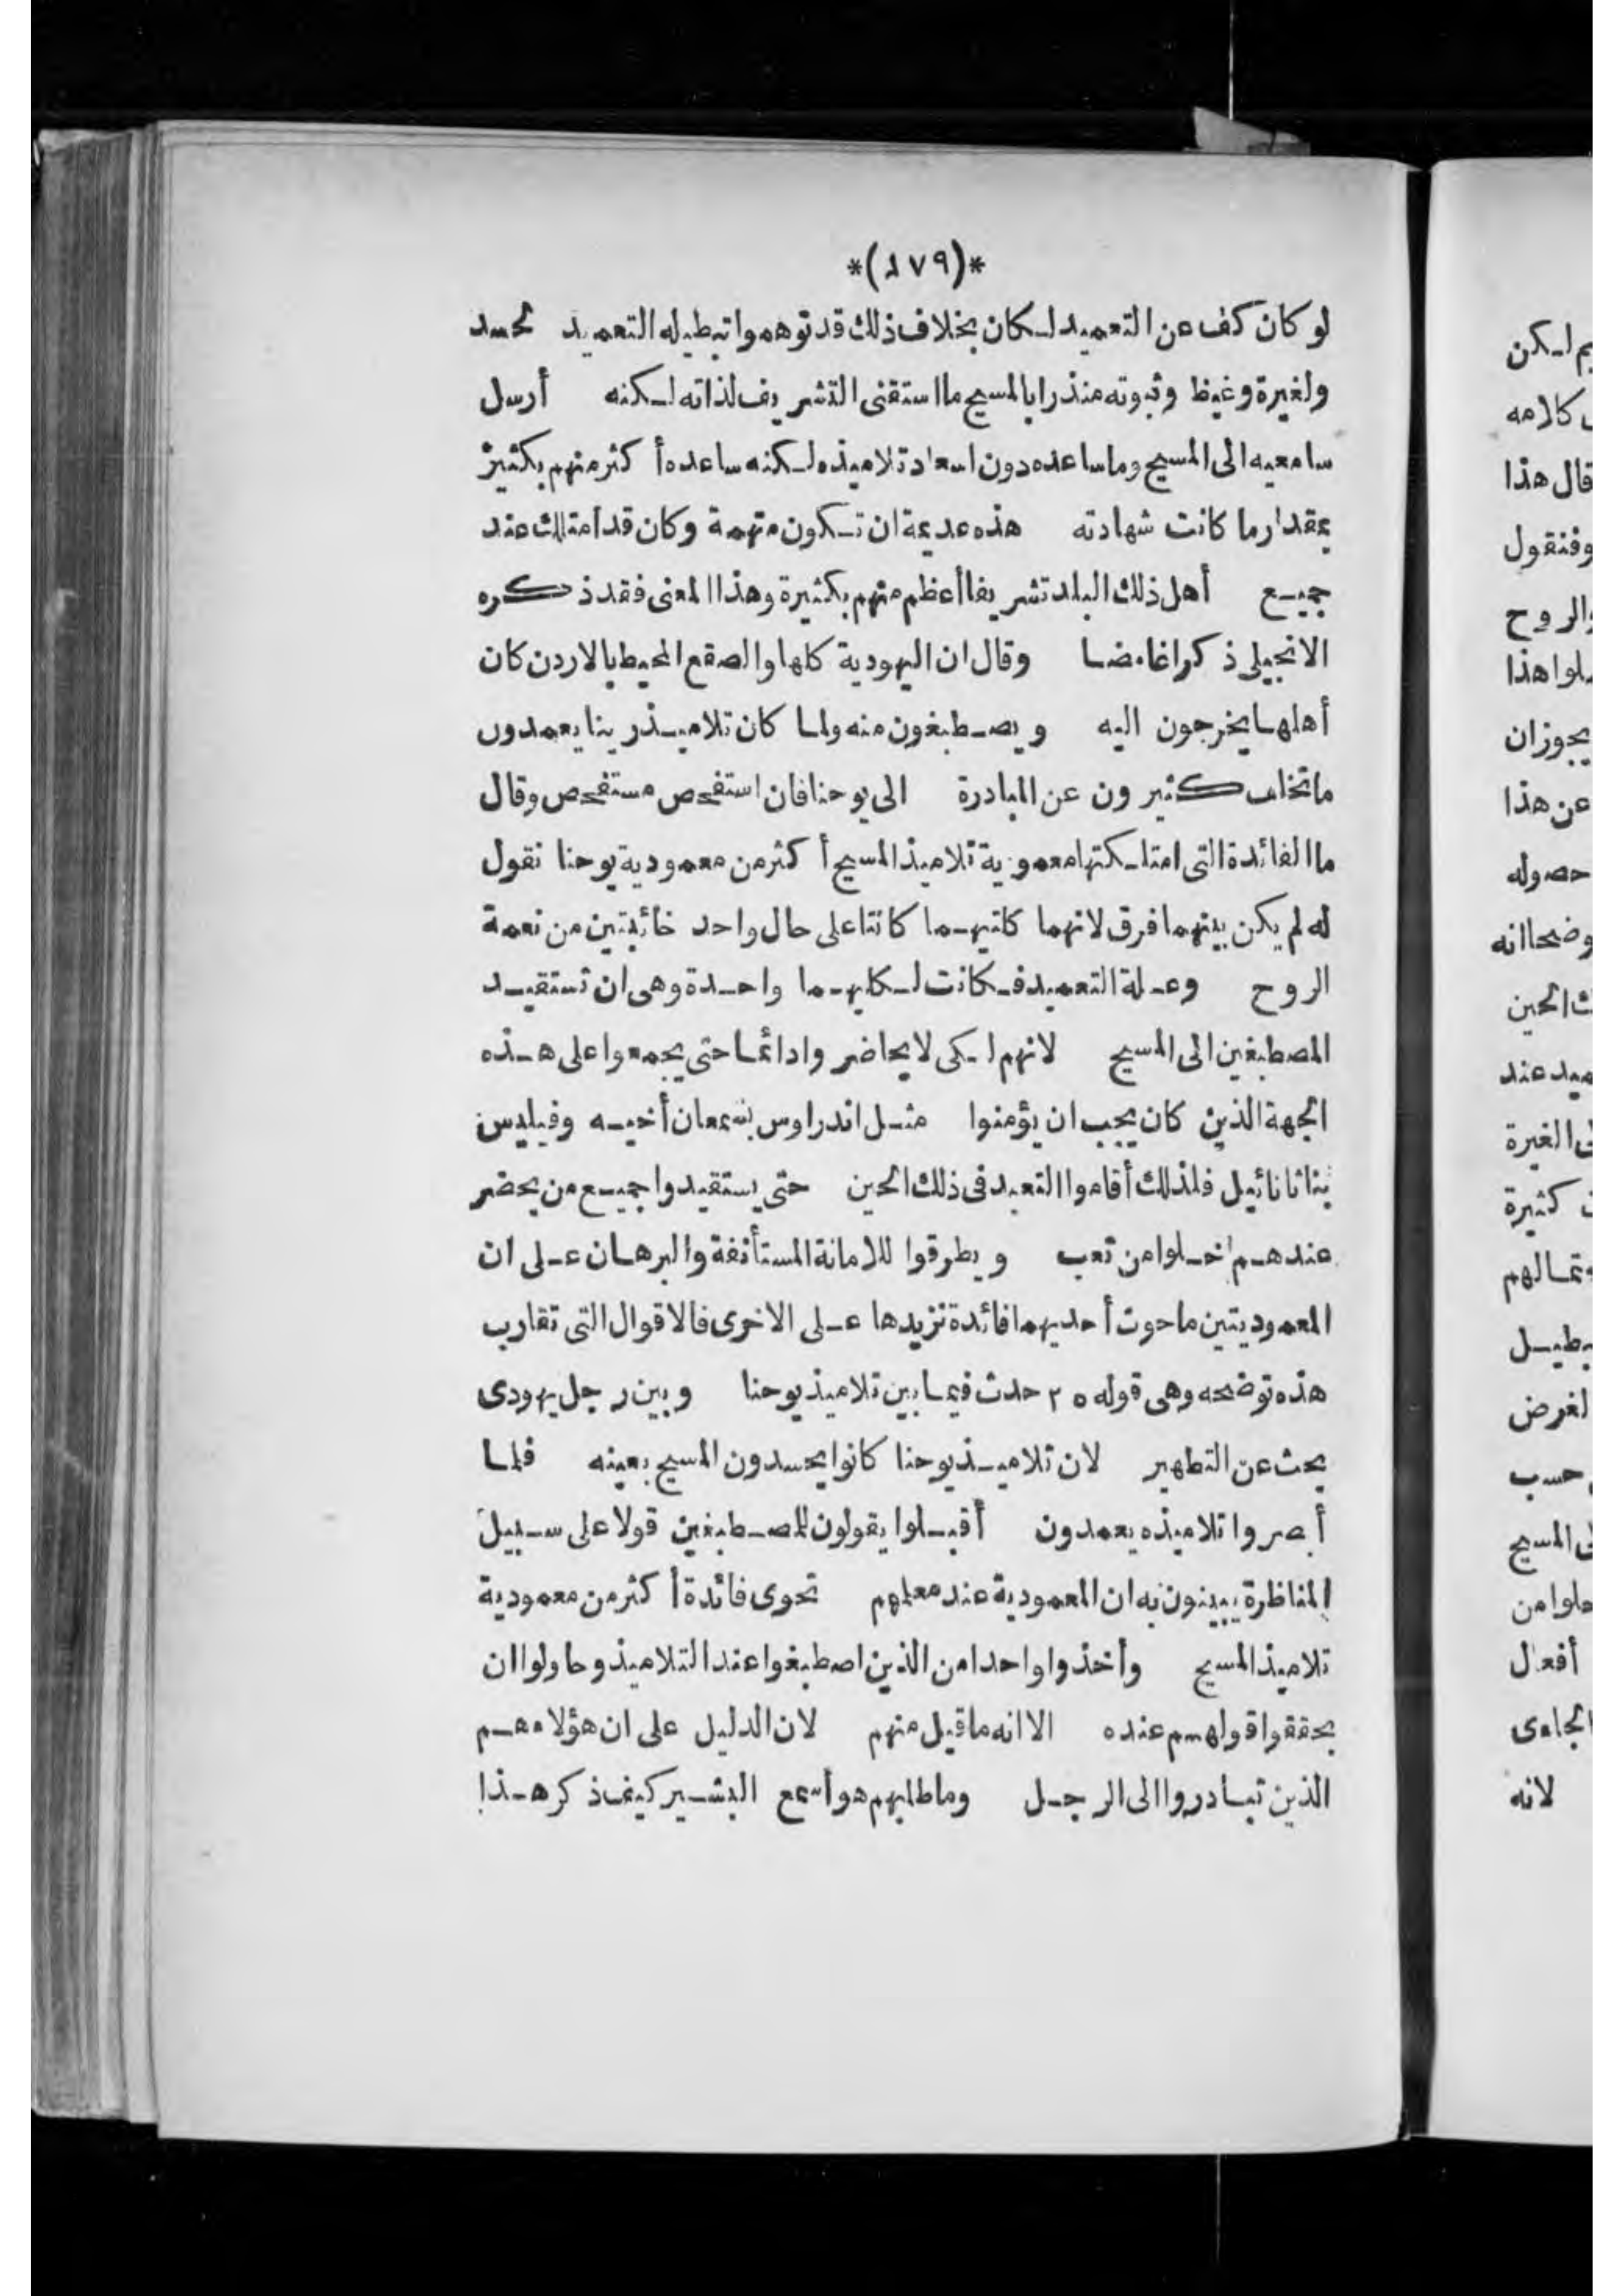 *(١٧٩)*
لو كان كف عن التعميد لكان بخلاف ذلك قد توهموا تبطيله التعميد لحسد
ولغيرة وغيظ وثبوته منذرا بالمسيح ما استقنى التشريف لذاته لكنه أرسل
سامعيه الى المسيح وما ساعده دون اسعاد تلاميذه لكنه ساعده أكثر منهم بكثير
بمقدار ما كانت شهادته هذه عديمة ان تكون متهمة وكان قد امتلك عند
جميع أهل ذلك البلد تشريفا أعظم منهم بكثيرة وهذا المعنى فقد ذكره
الانجيلى ذكرا غامضا وقال ان اليهودية كلها والصقع المحيط بالاردن كان
أهلها يخرجون اليه ويصطبغون منه ولما كان تلاميذ ربنا يعمدون
ما تخلف كثيرون عن المبادرة الى يوحنا فان استفحص مستفحص وقال
ما الفائدة التى امتلكتها معموية تلاميذ المسيح أكثر من معمودية يوحنا نقول
له لم يكن بينهما فرق لانهما كلتيهما كانتا على حال واحد خائبتين من نعمة
الروح وعلة التعميد فكانت لكليهما واحدة وهى ان تستقيد
المصطبغين الى المسيح لانهم لكى لا يحاضروا دائما حتى يجمعوا على هذه
الجهة الذين كان يجب ان يؤمنوا مثل اندراوس بسمعان أخيه وفيلبس
بناثانائيل فلذلك أقاموا التعبد فى ذلك الحين حتى يستقيدوا جميع من يحضر
عندهم اخلوا من تعب ويطرقوا للامانة المستأنفة والبرهان على ان
المعموديتين ما حوت أحديهما فائدة تزيدها على الاخرى فالاقوال التى تقارب
هذه توضحه وهى قوله ٢٥ حدث فيما بين تلاميذ يوحنا وبين رجل يهودى
بحث عن التطهير لان تلاميذ يوحنا كانوا يحسدون المسيح بعينه فلما
أبصروا تلاميذه يعمدون أقبلوا يقولون للمصطبغين قولا على سبيل
المناظرة يبينون به ان المعمودية عند معلمهم تحوى فائدة أكثر من معمودية
تلاميذ المسيح وأخذوا واحدا من الذين اصطبغوا عند التلاميذ وحاولوا ان
يحققوا قولهم عنده الا انه ما قبل منهم لان الدليل على ان هؤلاء هم
الذين تبادروا الى الرجل وما طلبهم هو أسمع البشير كيف ذكر هذا
يم لكن
كلامه
قال هذا
وفنقول
والروح
لوا هذا
يجوز ان
عن هذا
حصوله
وضحا انه
الحين
ميد عند
الغيرة
كثيرة
لغرض
حسب
المسيح
أفعال
لانه